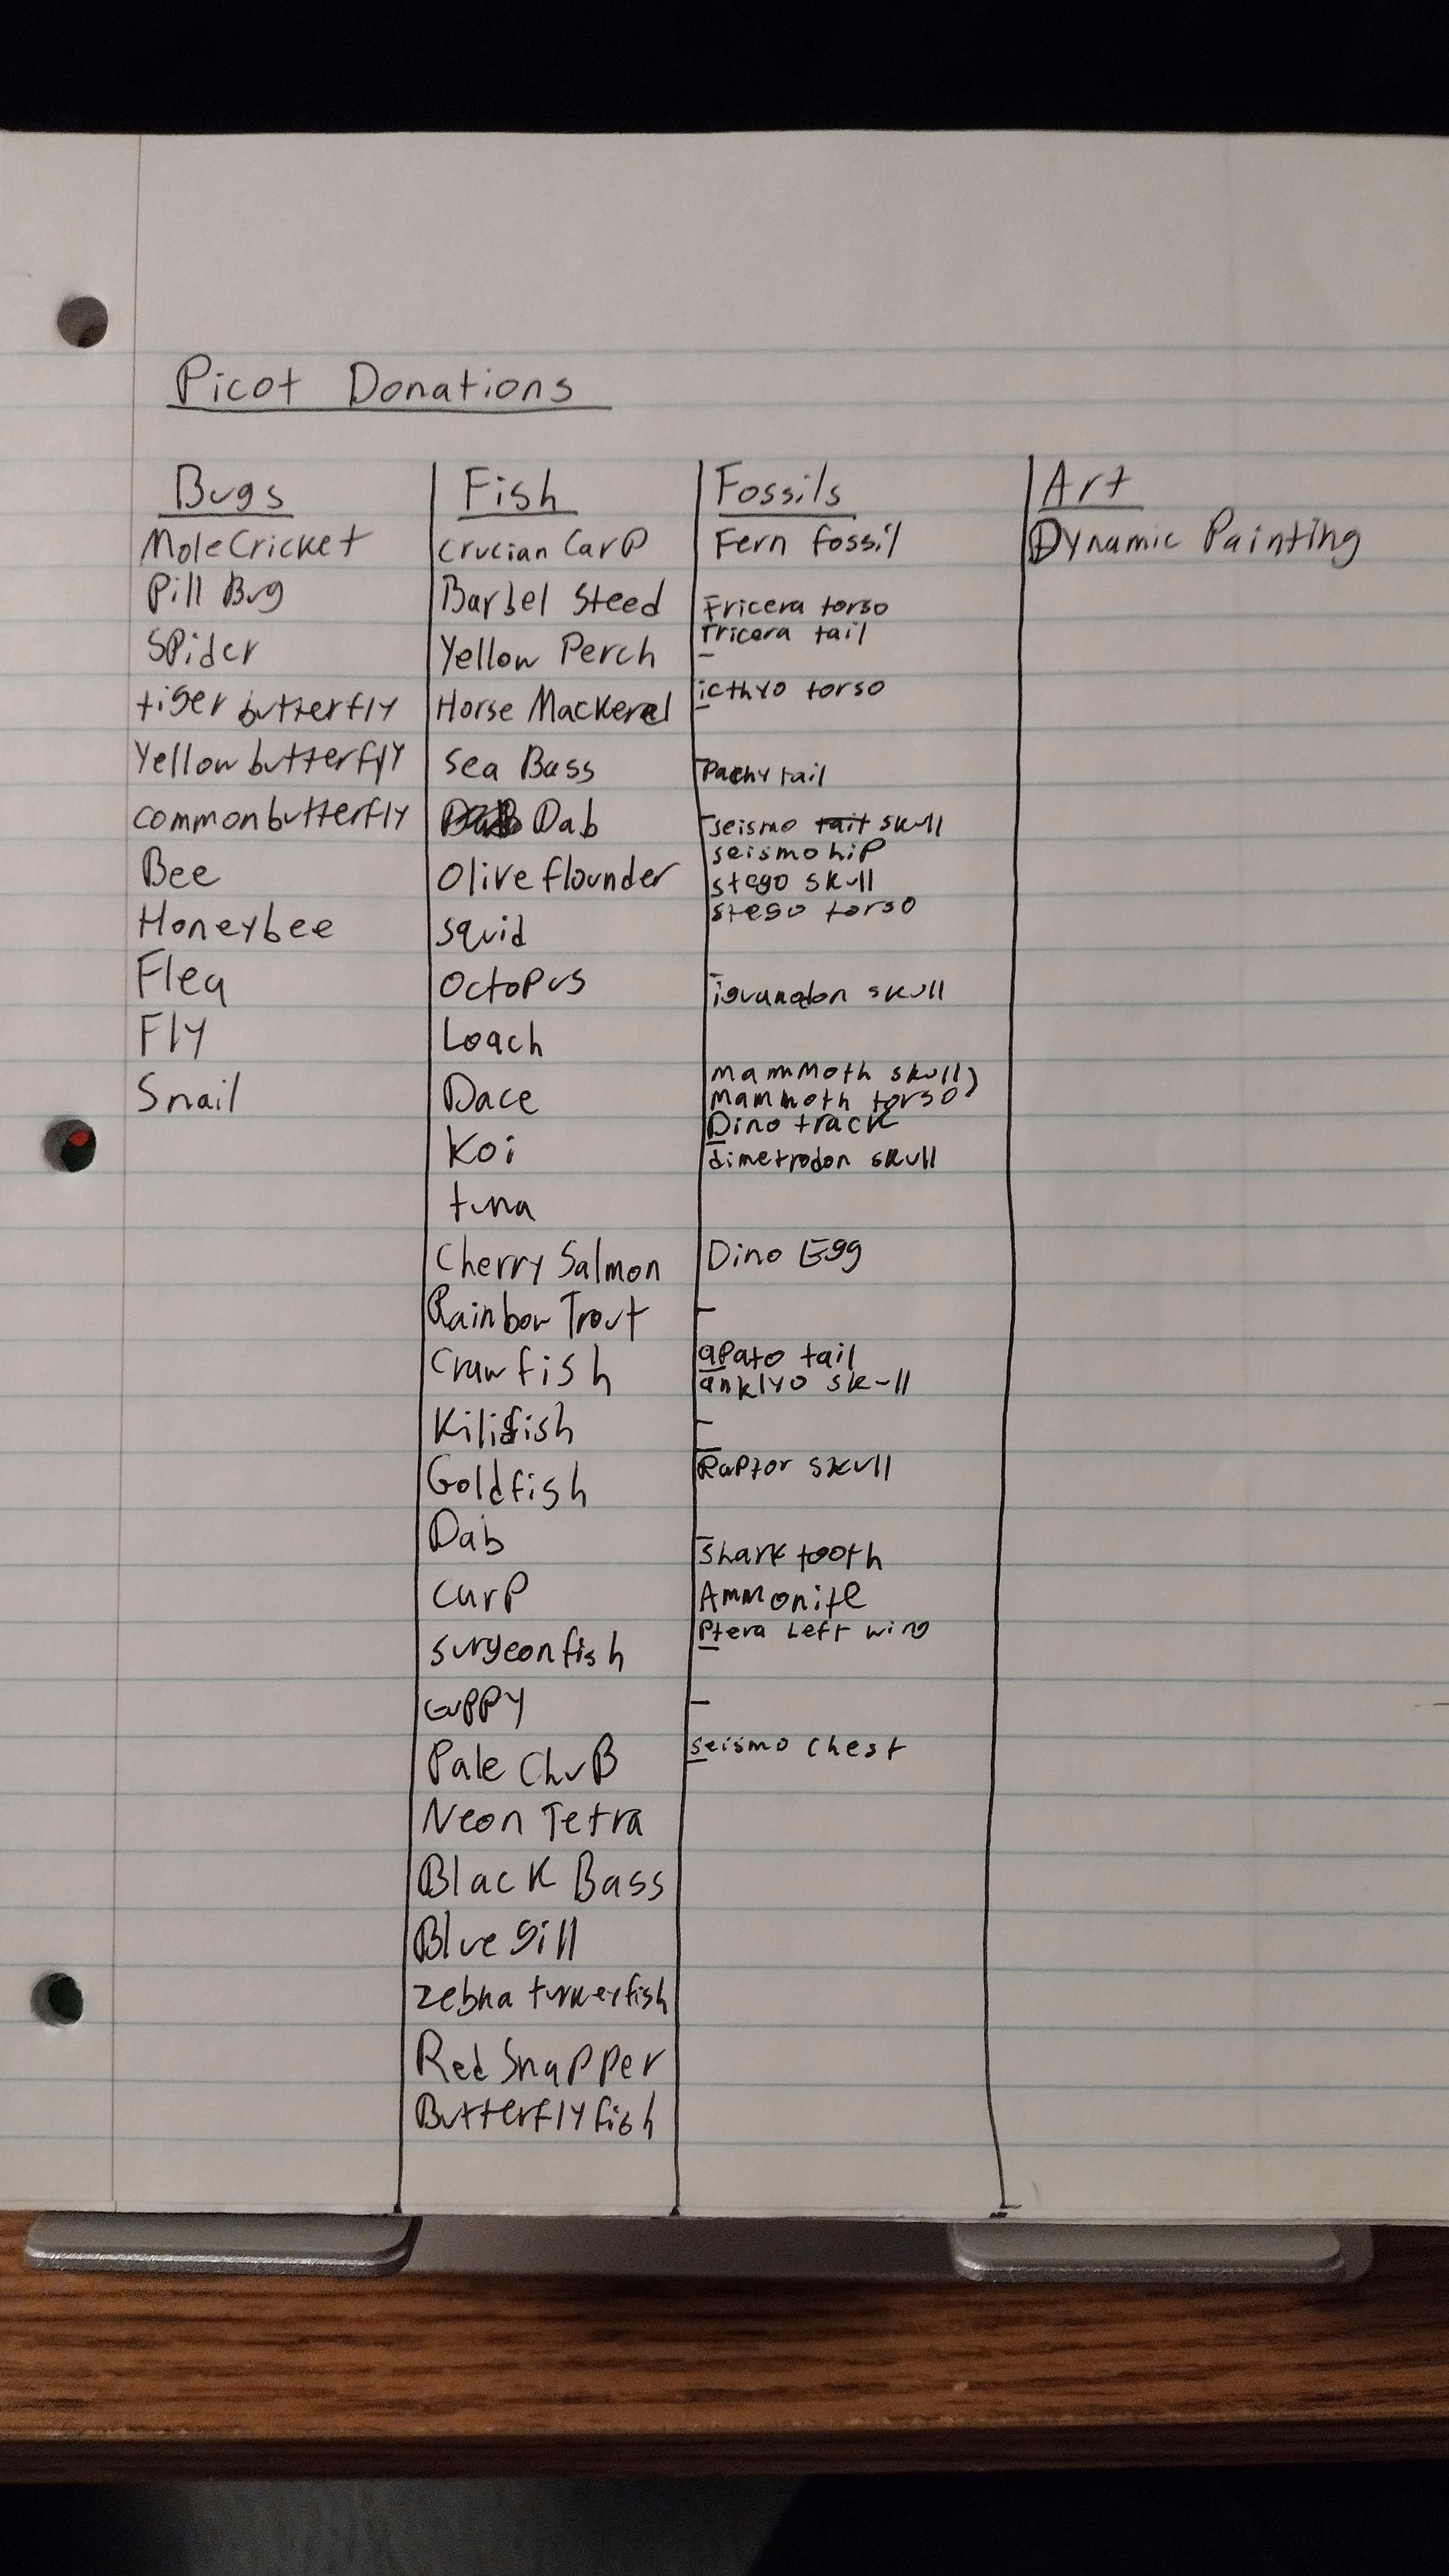 Picot Donations
Bugs
MoleCricket
Pill Bug
Spider
tiger butterfly
Yellow butterfly
common butterfly
Bee
Honeybee
Flea
Fly
Snail
Fish
Crucian Carp
Barbel Steed
Yellow Perch
Horse Mackerel
Sea Bass
Dab
Olive flounder
squid
Octopus
Loach
Dace
Koi
tuna
Cherry Salmon
Rainbow Trout
Crawfish
Kilifish
Goldfish
Dab
Carp
surgeonfish
Guppy
Pale Chub
Neon Tetra
Black Bass
Bluegill
zebra turkeyfish
Red Snapper
Butterflyfish
Fossils
Fern fossil
Tricera torso
Tricera tail
icthyo torso
Pachy tail
seismo tail skull
seismo hip
stego skull
stego torso
iguanadon skull
mammoth skull
mammoth torso
Dino track
dimetrodon skull
Dino Egg
apato tail
anklyo skull
Raptor skull
shark tooth
Ammonite
Ptera Left wing
seismo chest
Art
Dynamic Painting